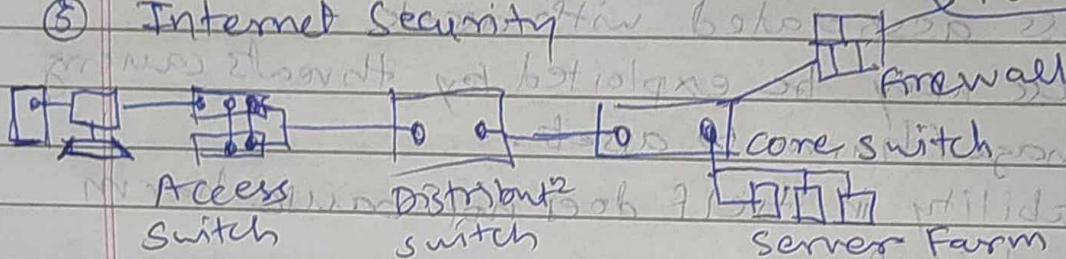 ⑤ Internet Security
firewall
core switch
Access
Switch
Distribut²
switch
Server Farm